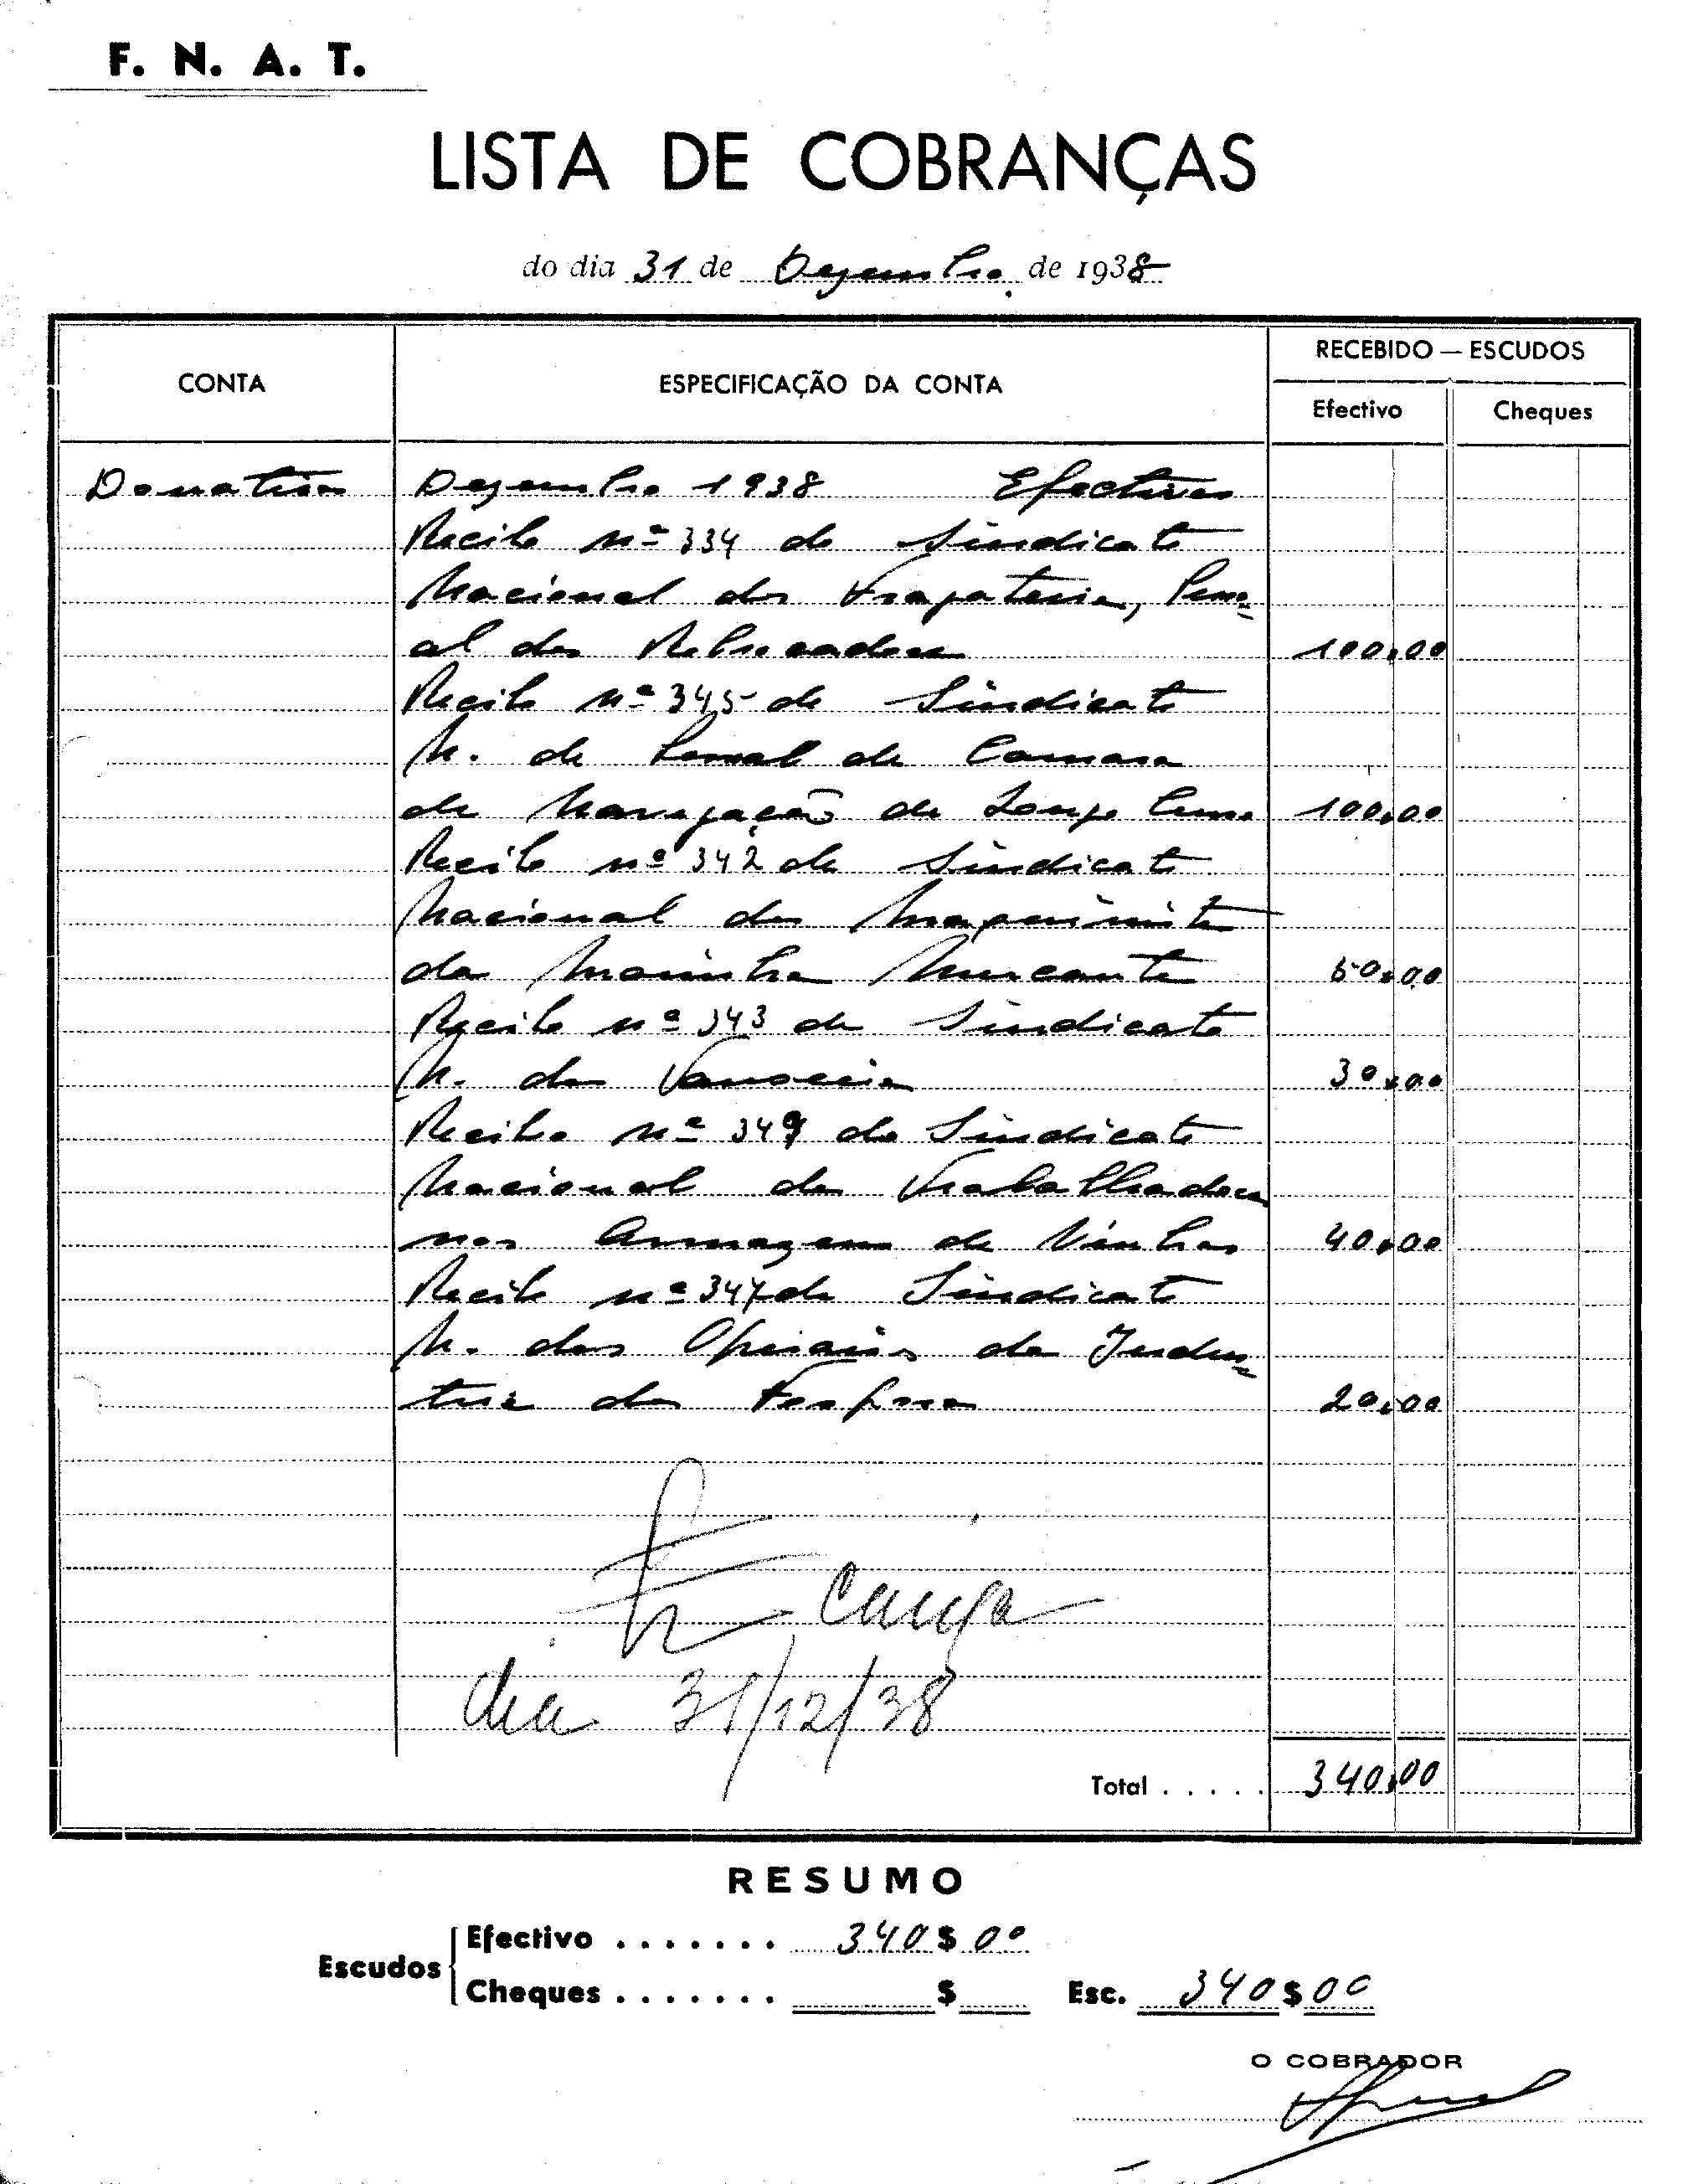 F. N. A. T.
LISTA DE COBRANÇAS
do dia 31 de Dezembro de 1938
CONTA
ESPECIFICAÇÃO DA CONTA
RECEBIDO — ESCUDOS
Efectivo
Cheques
Donativos Dezembro 1938 Efectivos
Recibo nº 334 do Sindicato
Nacional dos Fragateiros, Pesso=
al dos Rebocadores 100,00
Recibo nº 345 do Sindicato
N. do Pessoal de Camara
de Navegação de Longo Curso 100,00
Recibo nº 342 do Sindicato
Nacional dos Maquinistas
da Marinha Mercante 50,00
Recibo nº 343 do Sindicato
N. dos 30,00
Recibo nº 349 do Sindicato
Nacional dos Trabalhadores
nos Armazens de Vinhos 40,00
Recibo nº 347 do Sindicato
N. dos Operarios da Indus=
tria de 20,00
Caixa
dia 31/12/38
Total . . . . . 340,00
RESUMO
Escudos
Efectivo . . . . . . . 340$00
Cheques . . . . . . . $ Esc. 340$00
O COBRADOR